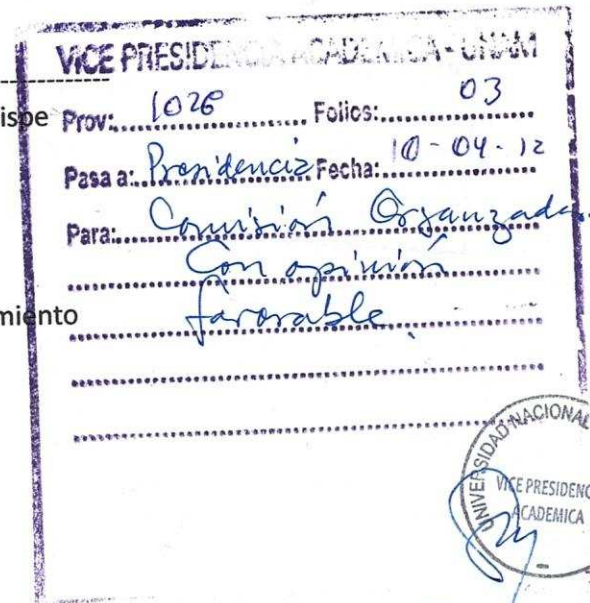 VICE PRESIDENCIA ACADEMICA - UNAM
ispe
Prov: 1026 Folios: 03
Pasa a: Presidencia Fecha: 10-04-12
Para: Comisión Organizada
Con opinión
miento
favorable.
UNIVERSIDAD NACIONAL
VICE PRESIDENC
ACADEMICA